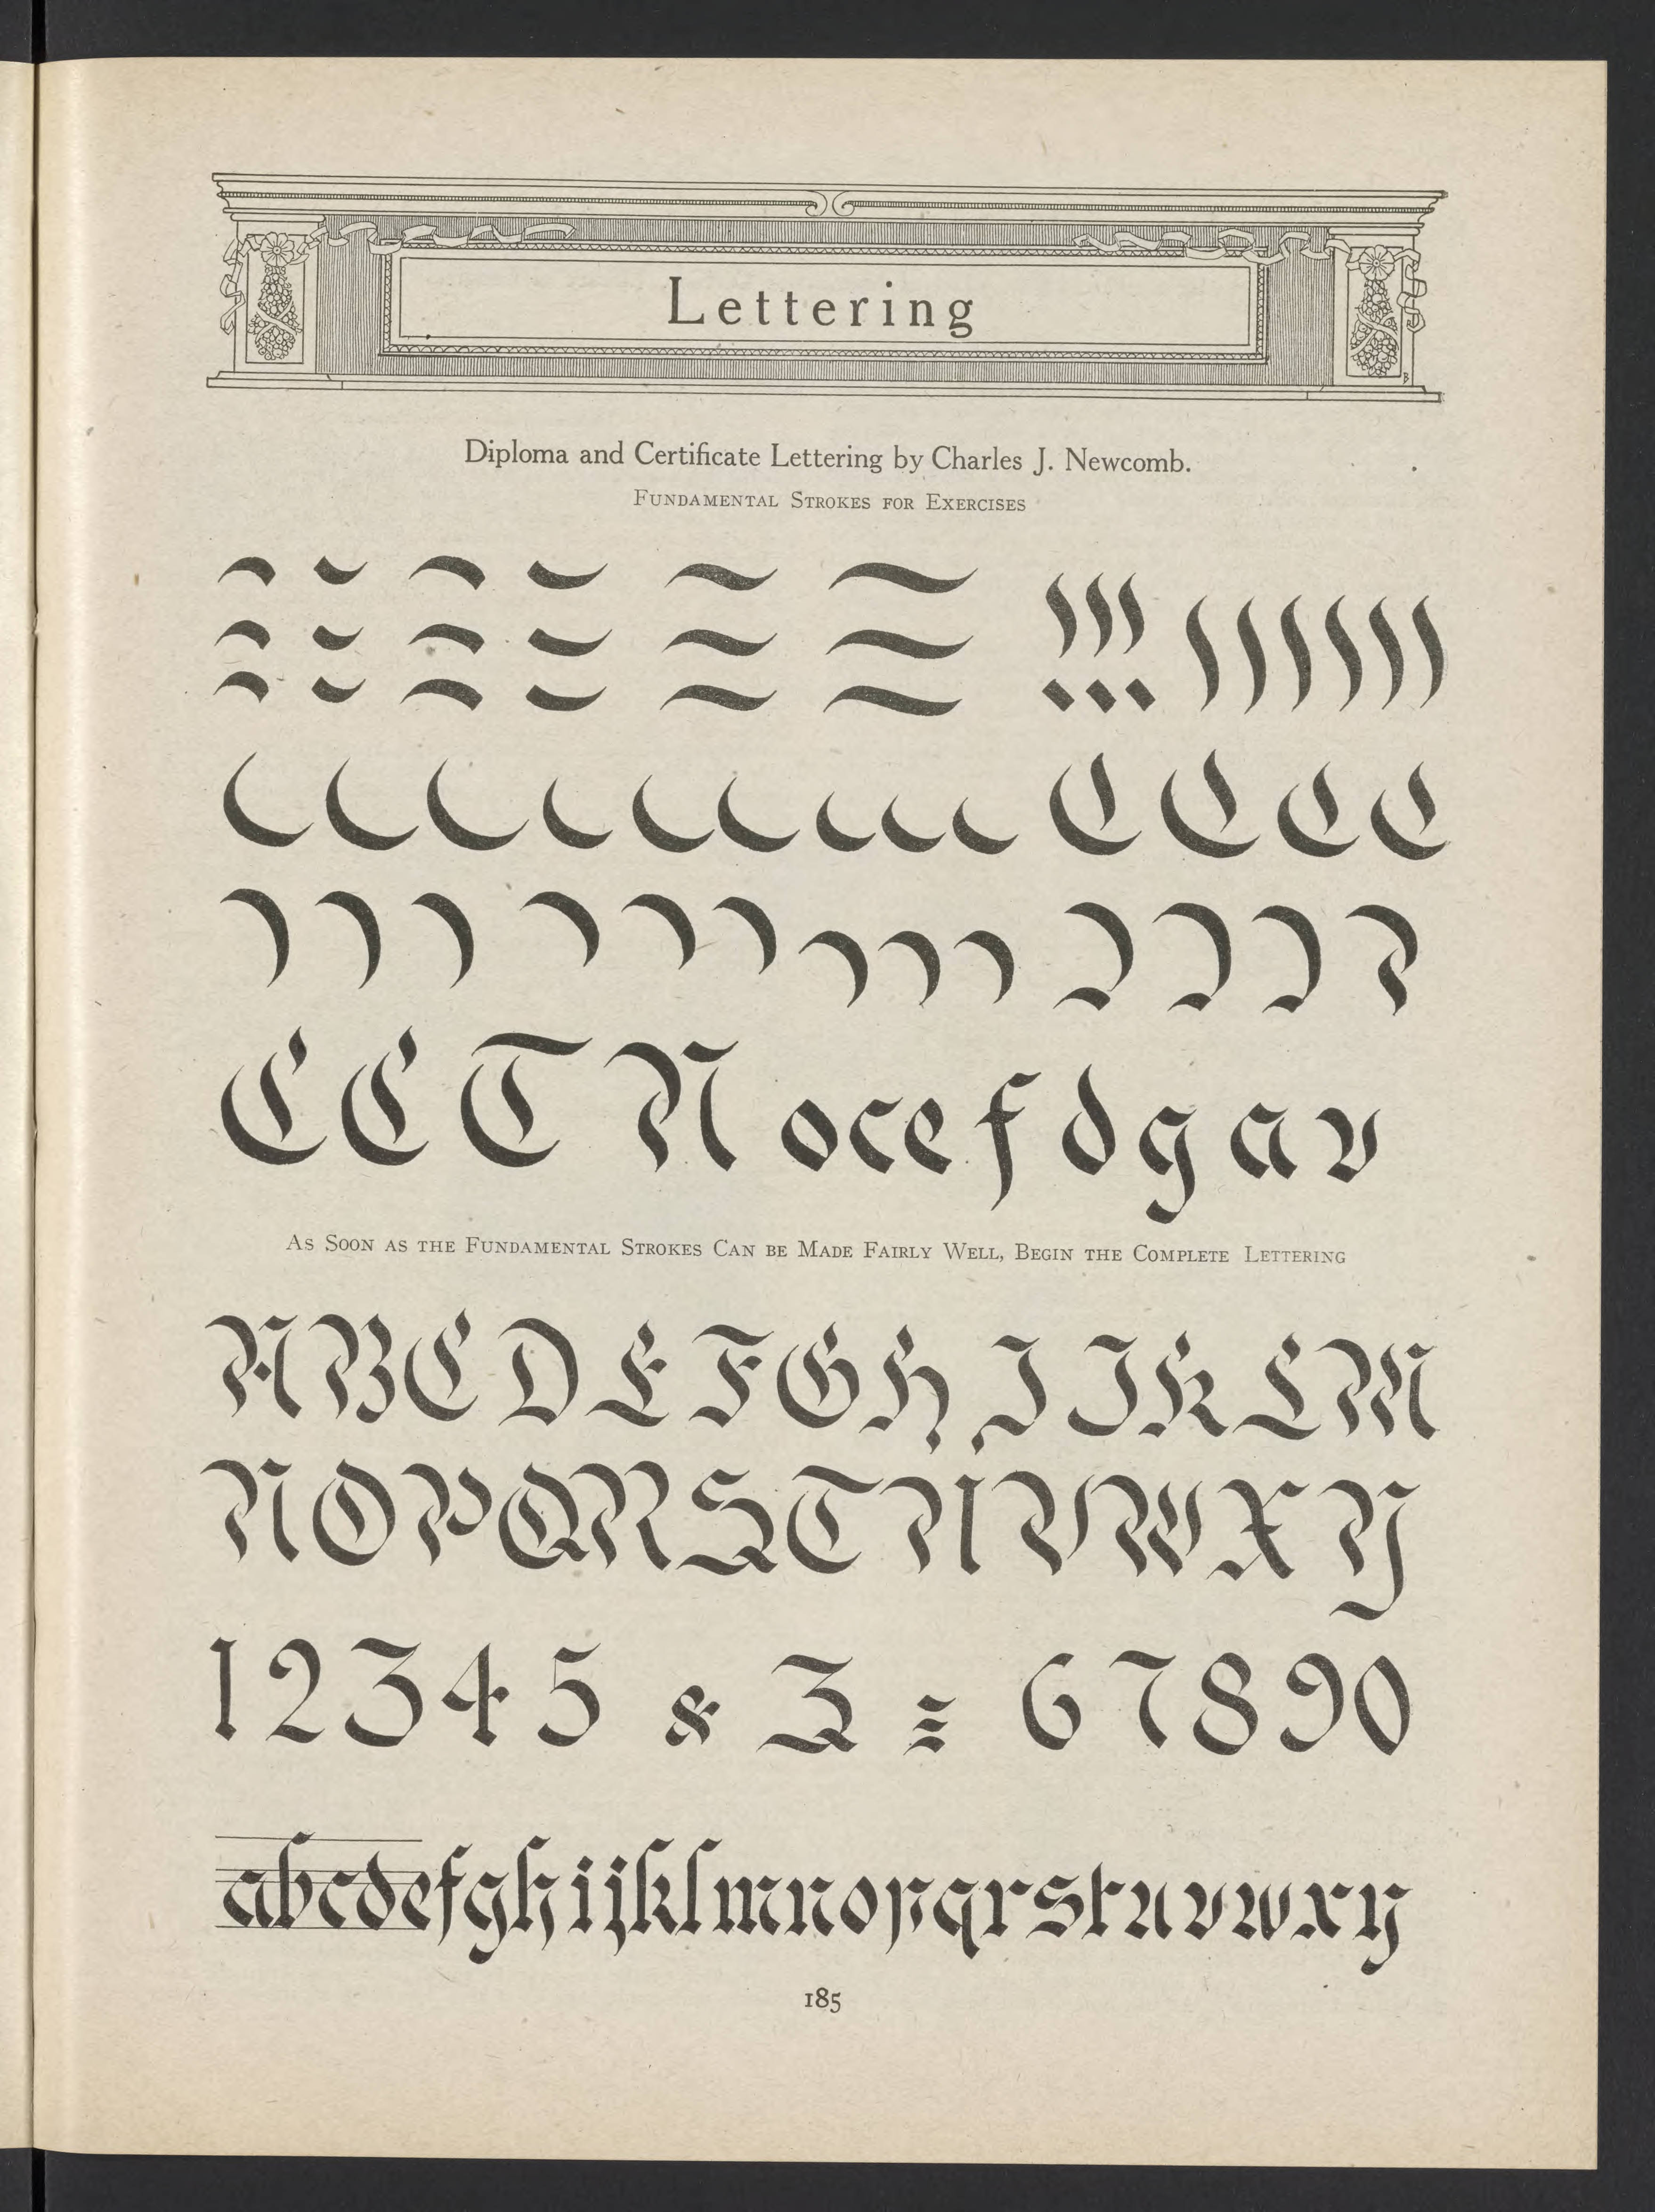 Lettering
Diploma and Certificate Lettering by Charles J. Newcomb.
Fundamental Strokes for Exercises
C C T N o c e f d g a v
As Soon as the Fundamental Strokes Can be Made Fairly Well, Begin the Complete Lettering
A B C D E F G H I J K L M
N O P Q R S T U V W X Y
1 2 3 4 5 & Z = 6 7 8 9 0
a b c d e f g h i j k l m n o p q r s t u v w x y
185